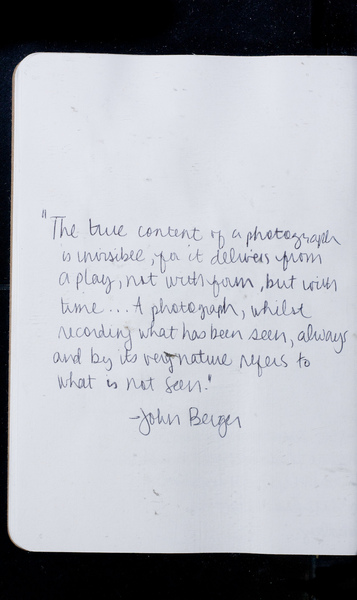 "The true content of a photograph
is invisible, for it delivers from
a play, not with form, but with
time... A photograph, whilst
recording what has been seen, always
and by its very nature refers to
what is not seen."
-John Berger